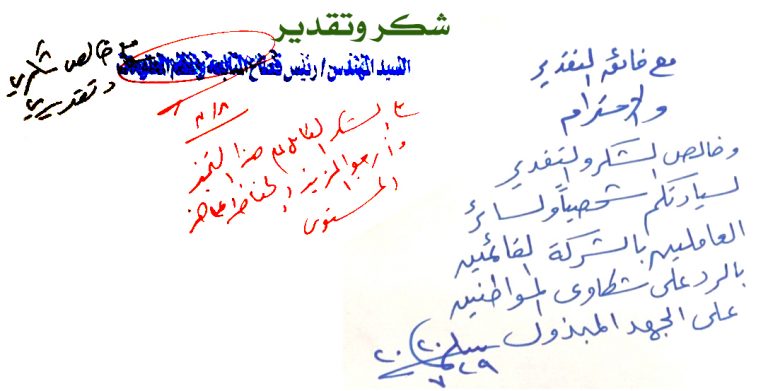 شكر وتقدير
السيد المهندس / رئيس قطاع المتابعة ونظم المعلومات
مع خالص شكري
وتقديري
مع الشكر الكامل على هذا التميز
وأرجو المزيد والحفاظ على هذا
المستوى
٣/٨
مع فائق التقدير
والاحترام
وخالص الشكر والتقدير
لسيادتكم شخصياً ولسائر
العاملين بالشركة القائمين
بالرد على شكاوى المواطنين
على الجهد المبذول
٢٠٢٠
٧/٢٩